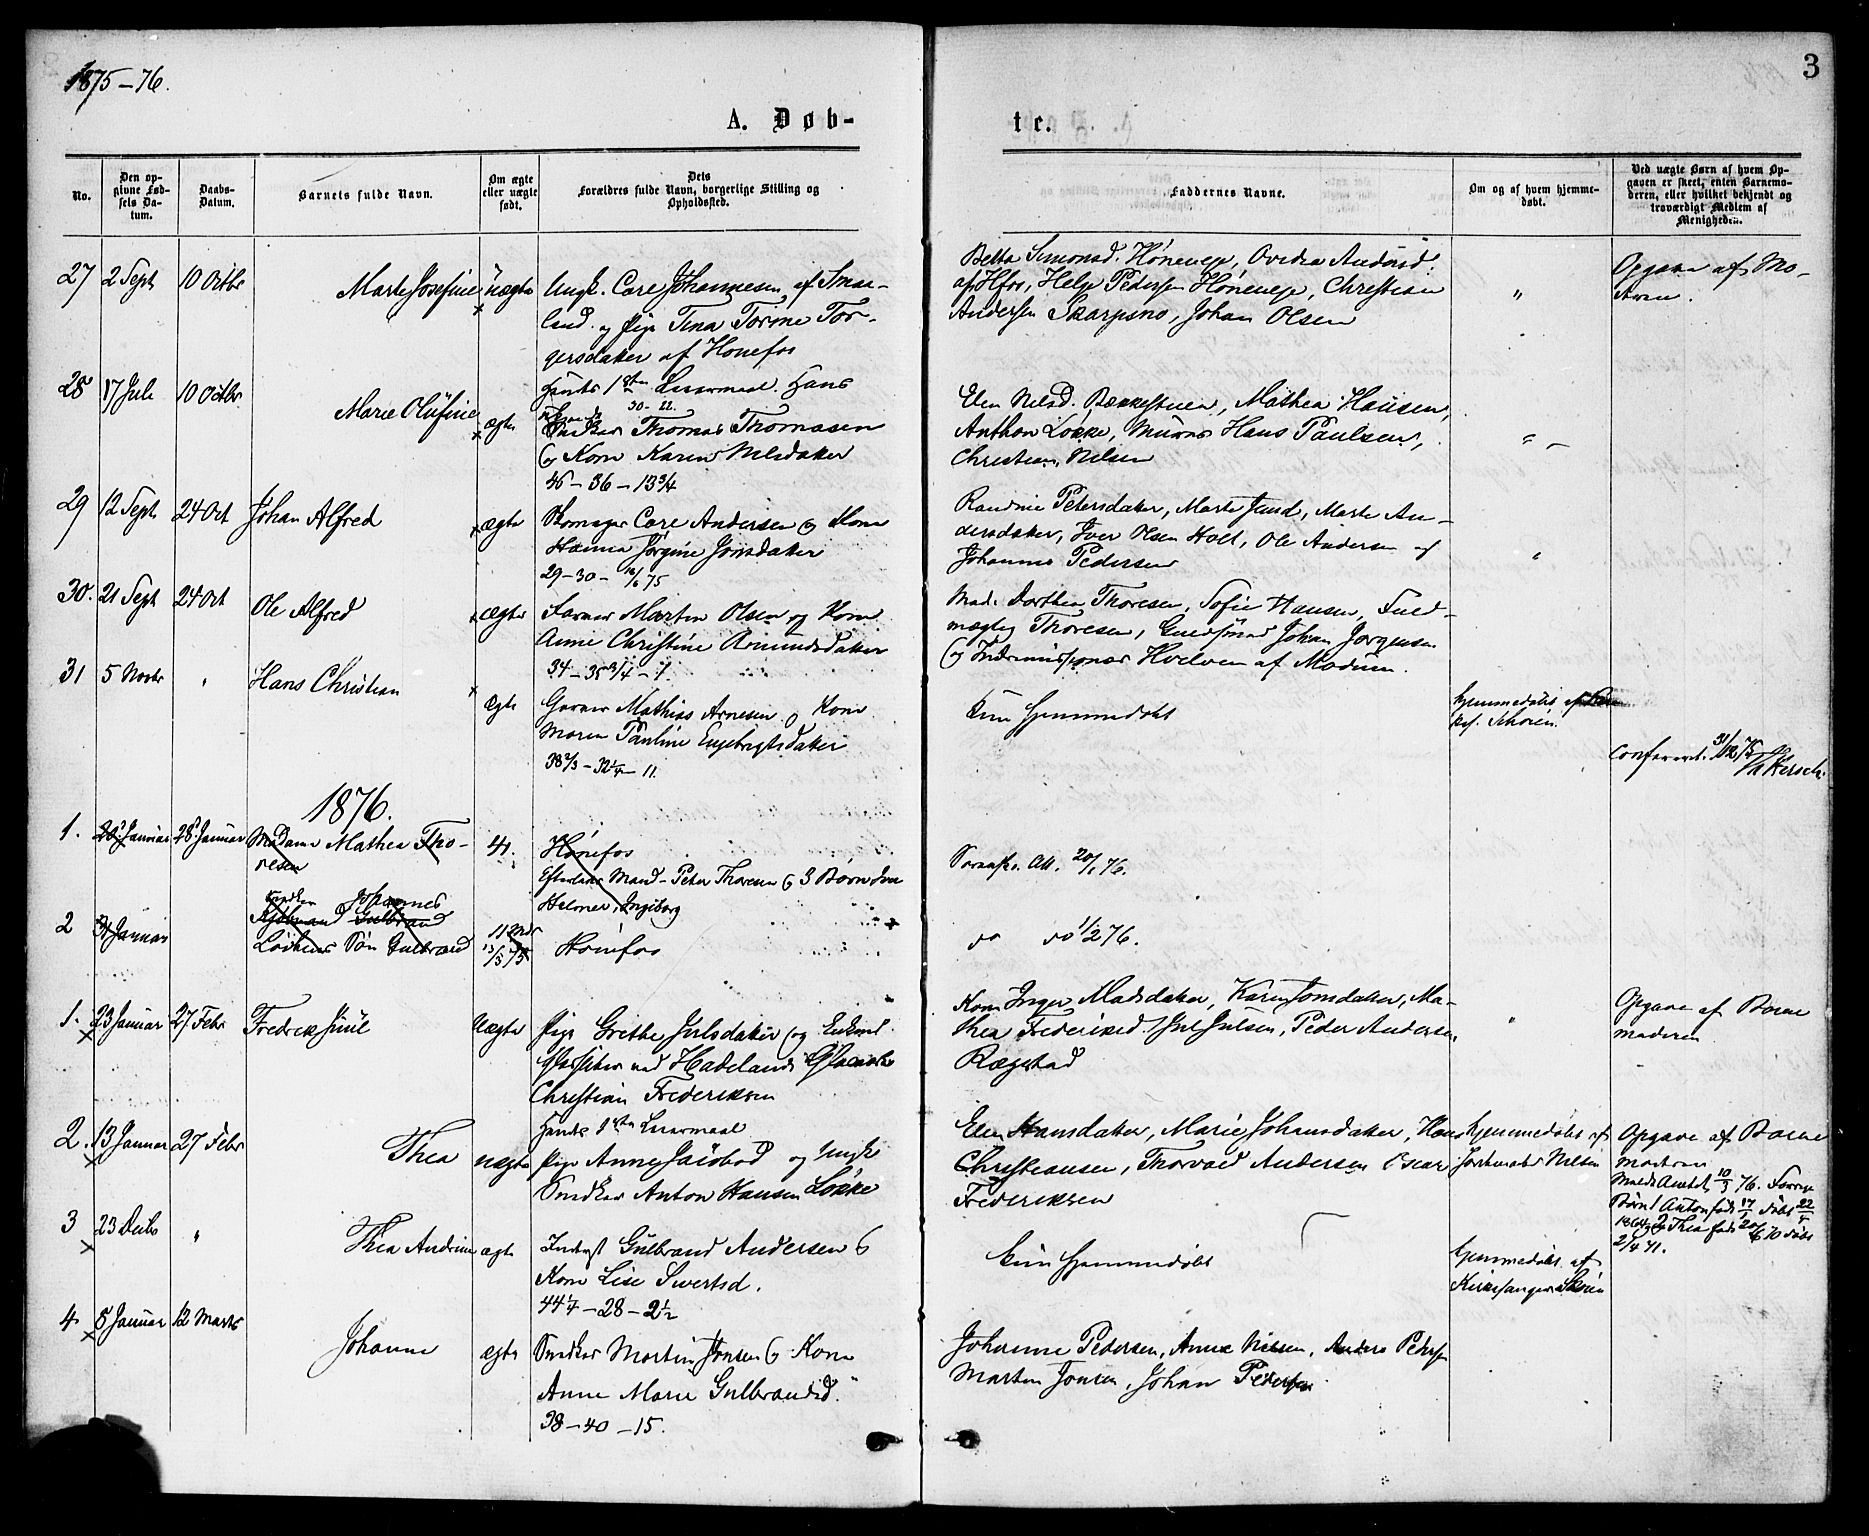 1875-76.
3
A. Døb-
te.
No.
Den op-
givne Fød-
sels Da-
tum.
Daabs-
Datum.
Barnets fulde Navn.
Om ægte
eller uægte
født.
Dets
Forældres fulde Navn, borgerlige Stilling og
Opholdssted.
Faddernes Navne.
Om og af hvem hjemme-
døbt.
Ved uægte Børn af hvem Op-
gaven er skeet, enten Barnemo-
deren, eller hvilket bekjendt og
troværdigt Medlem af
Menigheden.
27
2 Sept
10 Octbr
Marte Josefine
Uægte
Ungk. Carl Johannesen af Smaa-
land og Pige Tina Torine Tor-
gersdatter af Hønefos
Simonsd. Hønenge,
Helge Pedersen Hønenge, Christian
Andersen Skarpsno, Johan Olsen
"
Opgave af Mo-
deren.
28
17 Juli
10 Octbr
Marie Olufine
x ægte
1ste Leiermaal. Hans
30-22.
Snedker Thomas Thomasen
& Kone Karen Nilsdatter
46-36-13 3/4
Elen Nilsd. Bækkestuen, Mathea Hansen,
Anthon Løkke, Murer Hans Paulsen,
Christian Nilsen
"
29
12 Sept
24 Oct
Johan Alfred
x ægte
Skomager Carl Andersen & Kone
Hanna Jørgine Jonsdatter
29-30- /6 75
Randine Petersdatter, Marte Juul, Marte An-
dersdatter, Iver Olsen Holt, Ole Andersen og
Johannes Pedersen
"
30.
21 Sept
24 Oct
Ole Alfred
x ægte
Farver Martin Olsen og Kone
Anne Christine Amundsdatter
34-35 3/4-1
Mad. Dorthea Thoresen, Sofie Hansen, Fuld-
mægtig Thoresen, Johan Jørgensen
& Hvelven af Modum.
31
5 Novbr
"
Hans Christian
x ægte
Garver Mathias Arnesen og Kone
Maren Pauline Engebrigtsdatter
38 2/3-32 1/4-11.
Kun hjemmedøbt
hjemmedøbt af
Schøien.
Confereret. 31/12 75
1876.
1.
Januar
28 Januar
Madame Mathea Tho-
resen
41.
Hønefos
Efterlader Mand-Peter Thoresen & 3 Børn
Helmer, Ingeborg
Att. 20/1 76.
2
31 Januar
Johannes
Gulbrand
Løkkens Søn Gulbrand
11 Mdr
13/5 75
Hønefos
do do 1/2 76.
1.
x 23 Januar
27 Febr
Fredrik Juul
Uægte
Pige Grethe Julsdatter og Enkem.
Glaspuster ved Hadelands Glasværk
Christian Frederiksen
Kone Inger Madsdatter, Karen Jonsdatter, Ma-
thea Frederiksd. Jul Julsen, Peder Andersen
Rægstad
"
Opgave af Barne
moderen
2.
x 13 Januar
27 Febr
Thea
uægte
Hendes 1ste Leiermaal
Pige Anne Jacobsd og Ungk
Snedker Anton Hansen Løkke
Elen Hansdatter, Marie Johansdatter, Hans
Christiansen, Thorvald Andersen Oscar
Frederiksen
hjemmedøbt af
Jordmoder Nilsen
Opgave af Barne
moderen
10/3 76. Forrige
Børn 1 Anton født 17/ døbt 22/
2 Thea født døbt
2/4 71.
3
x 23 Decbr
"
Thea Andrine
ægte
Gulbrand Andersen &
Kone Lise Sivertsd.
44 1/4-28-2 1/2
Kun hjemmedøbt
hjemmedøbt af
Kirkesanger Skøien
4
x 5 Januar
12 Marts
Johanne
ægte
Snedker Martin Jonsen & Kone
Anne Marie Gulbrandsd.
38-40-15.
Johanne Pedersen, Anne Nilsen, Anders Peders
Marten Jonsen, Johan Pedersen